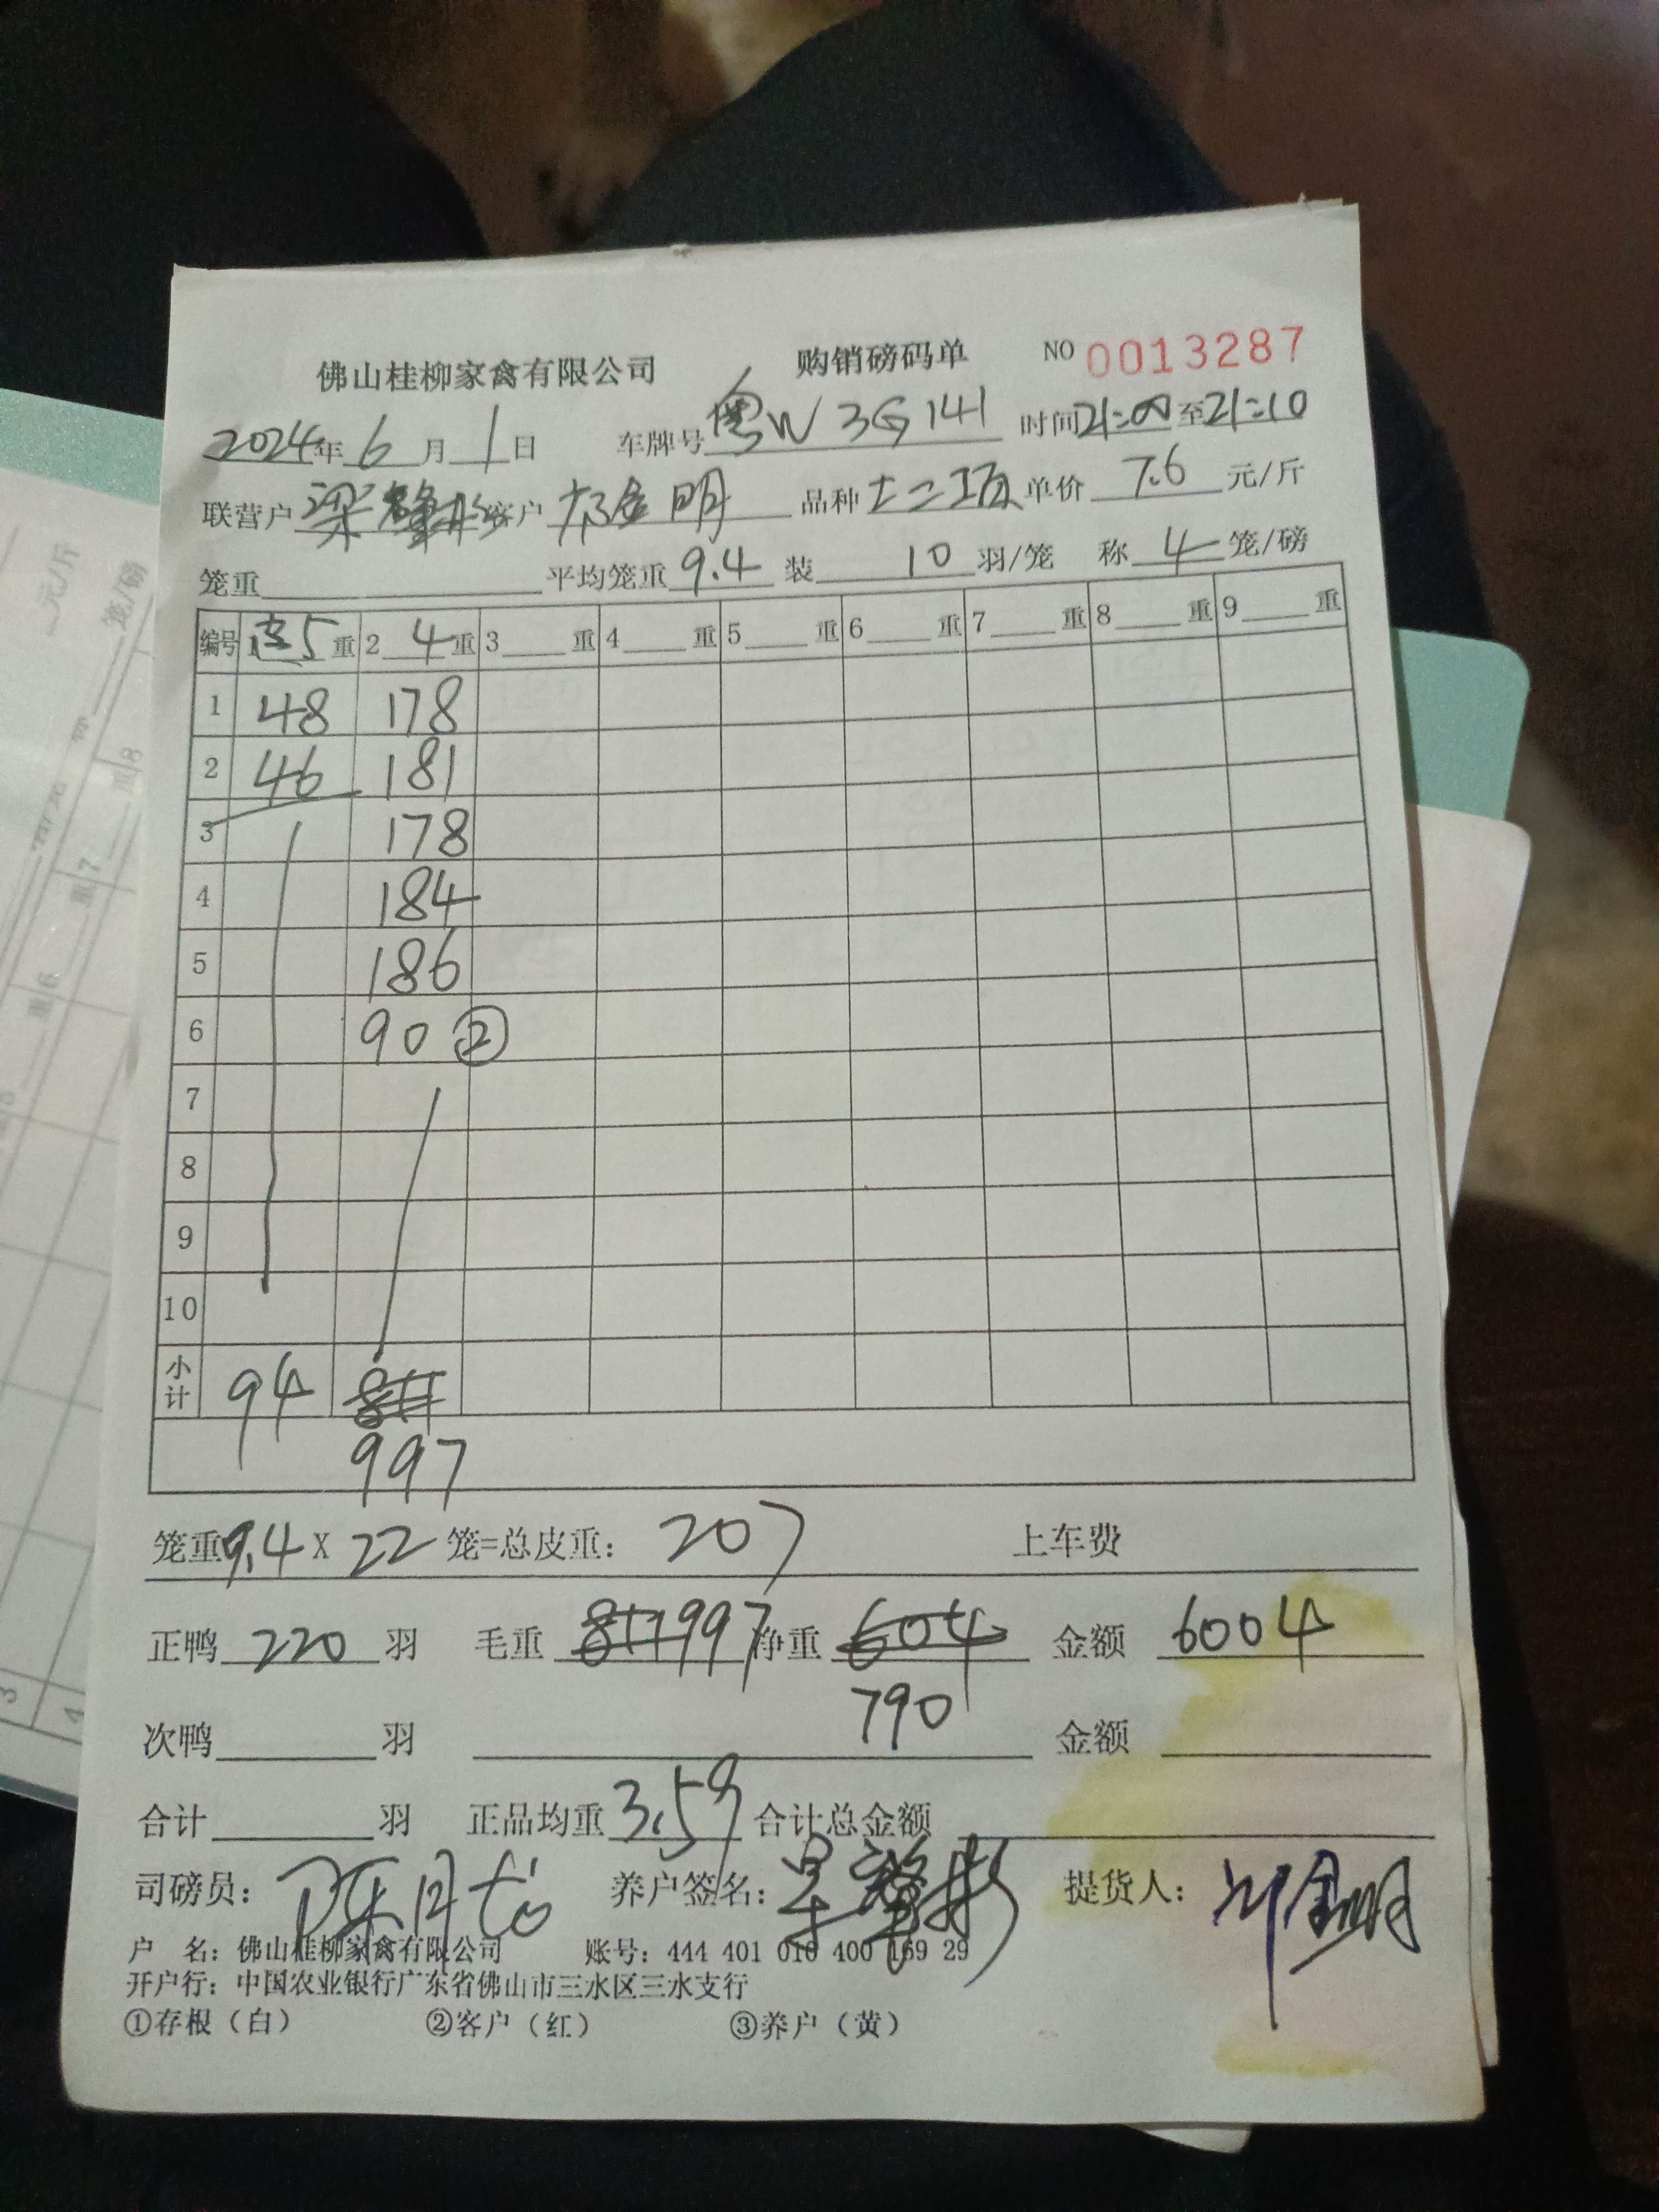 佛山桂柳家禽有限公司 购销磅码单 NO 0013287
2024年6月1日 车牌号粤W 3G141 时间21:00至21:10
联营户梁肇彬 客户 邝金明 品种 单价 7.6 元/斤
笼重 平均笼重9.4 装 10 羽/笼 称 4 笼/磅
编号 5重 2 4重 3 重 4 重 5 重 6 重 7 重 8 重 9 重
1 48 178
2 46 181
3 178
4 184
5 186
6 90 ②
7
8
9
10
小计 94
997
笼重9.4 X 22 笼=总皮重: 207 上车费
正鸭 220 羽 毛重 997 净重 604 金额 6004
790
次鸭 羽 金额
合计 羽 正品均重3.59 合计总金额
司磅员: 养户签名: 提货人: 邝金明
户 名: 佛山桂柳家禽有限公司 账号: 444 401 010 400 169 29
开户行: 中国农业银行广东省佛山市三水区三水支行
①存根(白) ②客户(红) ③养户(黄)